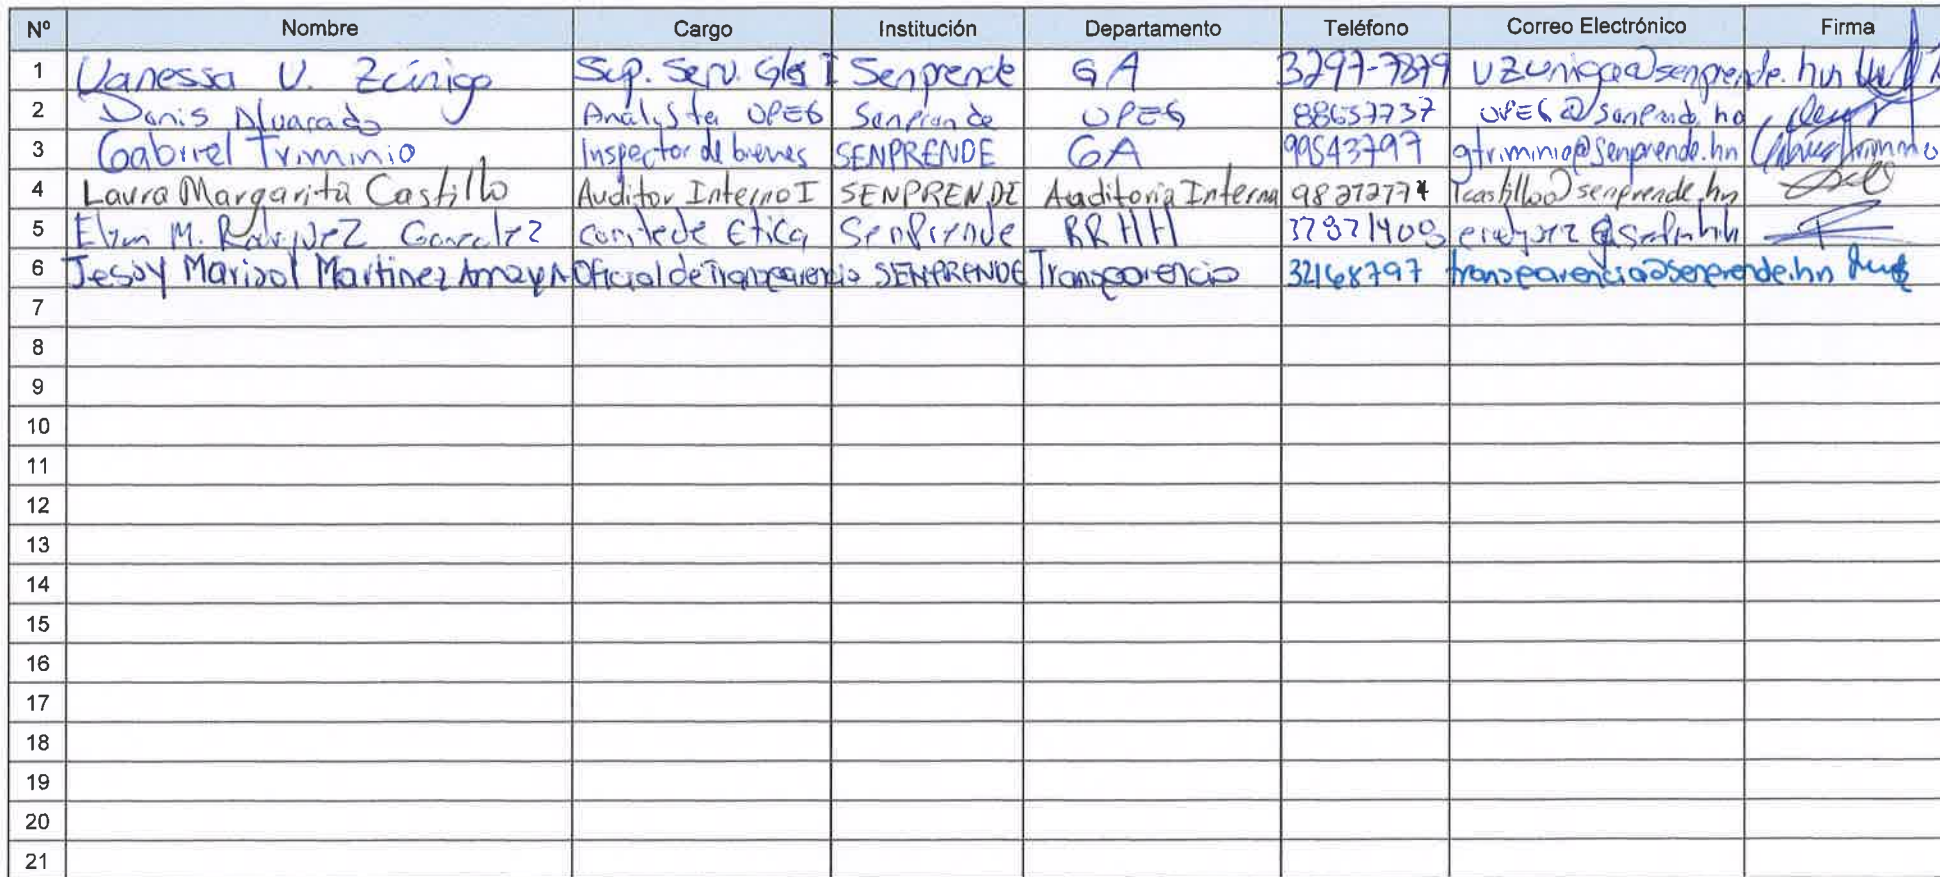 Nº Nombre Cargo Institución Departamento Teléfono Correo Electrónico Firma
1 Vanessa U. Zúniga Sup. Serv. Gles I Senprende GA 3297-7879 vzuniga@senprende.hn
2 Danis Alvarado Analysta UPEG Senprende UPEG 88657737
3 Gabriel Triminio Inspector de bienes SENPRENDE GA 99543797 gtriminio@senprende.hn
4 Laura Margarita Castillo Auditor Interno I SENPRENDE Auditoria Interna lcastillo@senprende.hn
5 M. comite de Etica SenPrende RRHH
6 Jessy Marisol Martinez Amaya Oficial de Transparencia SENPRENDE Transparencia 32168797 transparencia@senprende.hn
7
8
9
10
11
12
13
14
15
16
17
18
19
20
21